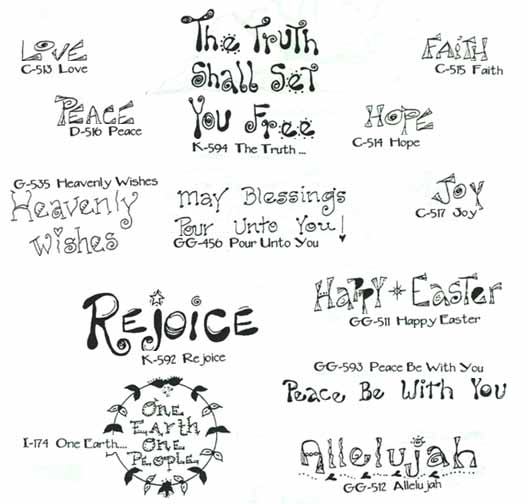 The Truth
Shall Set
You Free
K-594 The Truth...
Love
C-513 Love
Faith
C-515 Faith
Peace
D-516 Peace
Hope
C-514 Hope
G-535 Heavenly Wishes
Heavenly
Wishes
May Blessings
Pour Unto You!
GG-456 Pour Unto You
Joy
C-517 Joy
Rejoice
K-592 Rejoice
Happy Easter
GG-511 Happy Easter
GG-593 Peace Be With You
Peace Be With You
One
Earth
One
People
I-174 One Earth....
Allelujah
GG-512 Allelujah